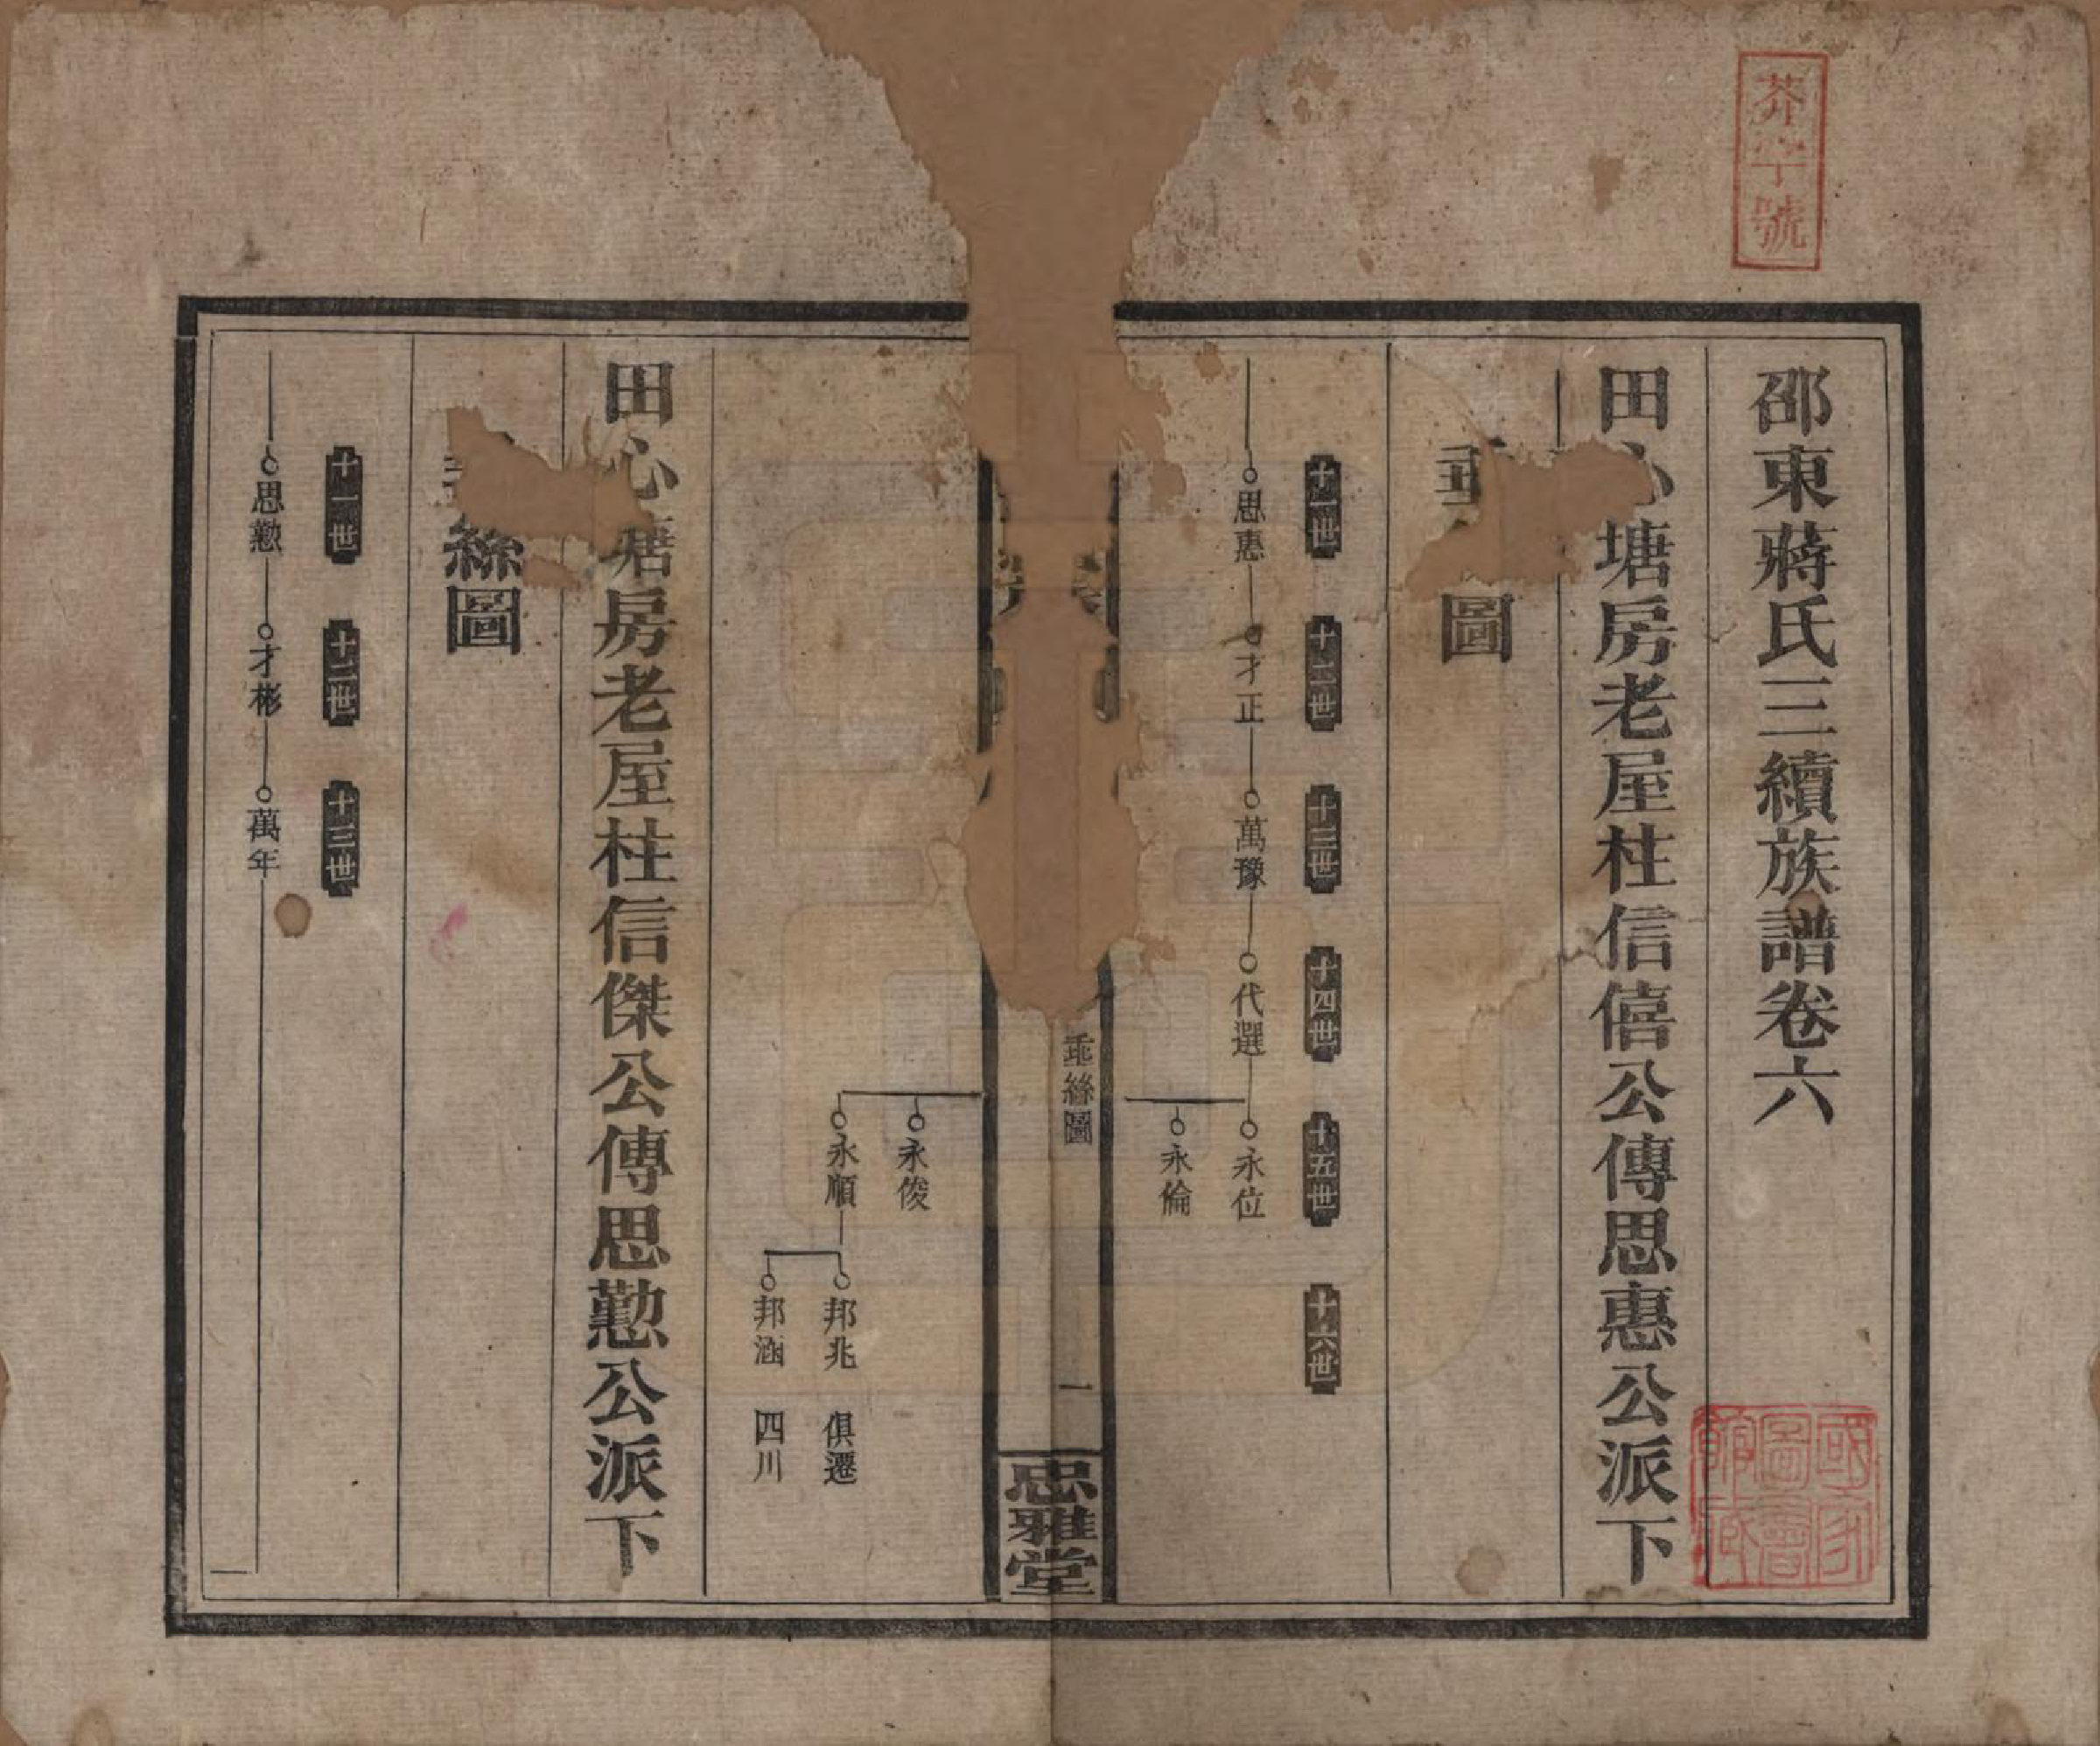 芥字號
邵東蔣氏三續族譜卷六
田心塘房老屋柱信僖公傳思惠公派下
圖
十一世
十二世
十三世
十四世
十五世
十六世
思惠
才正
萬豫
代選
永位
永倫
垂絲圖
一
忠雅堂
永俊
永順
邦兆 俱遷
邦涵 四川
田心塘房老屋柱信傑公傳思懃公派下
絲圖
十一世
十二世
十三世
思懃
才彬
萬年
國家圖書館藏